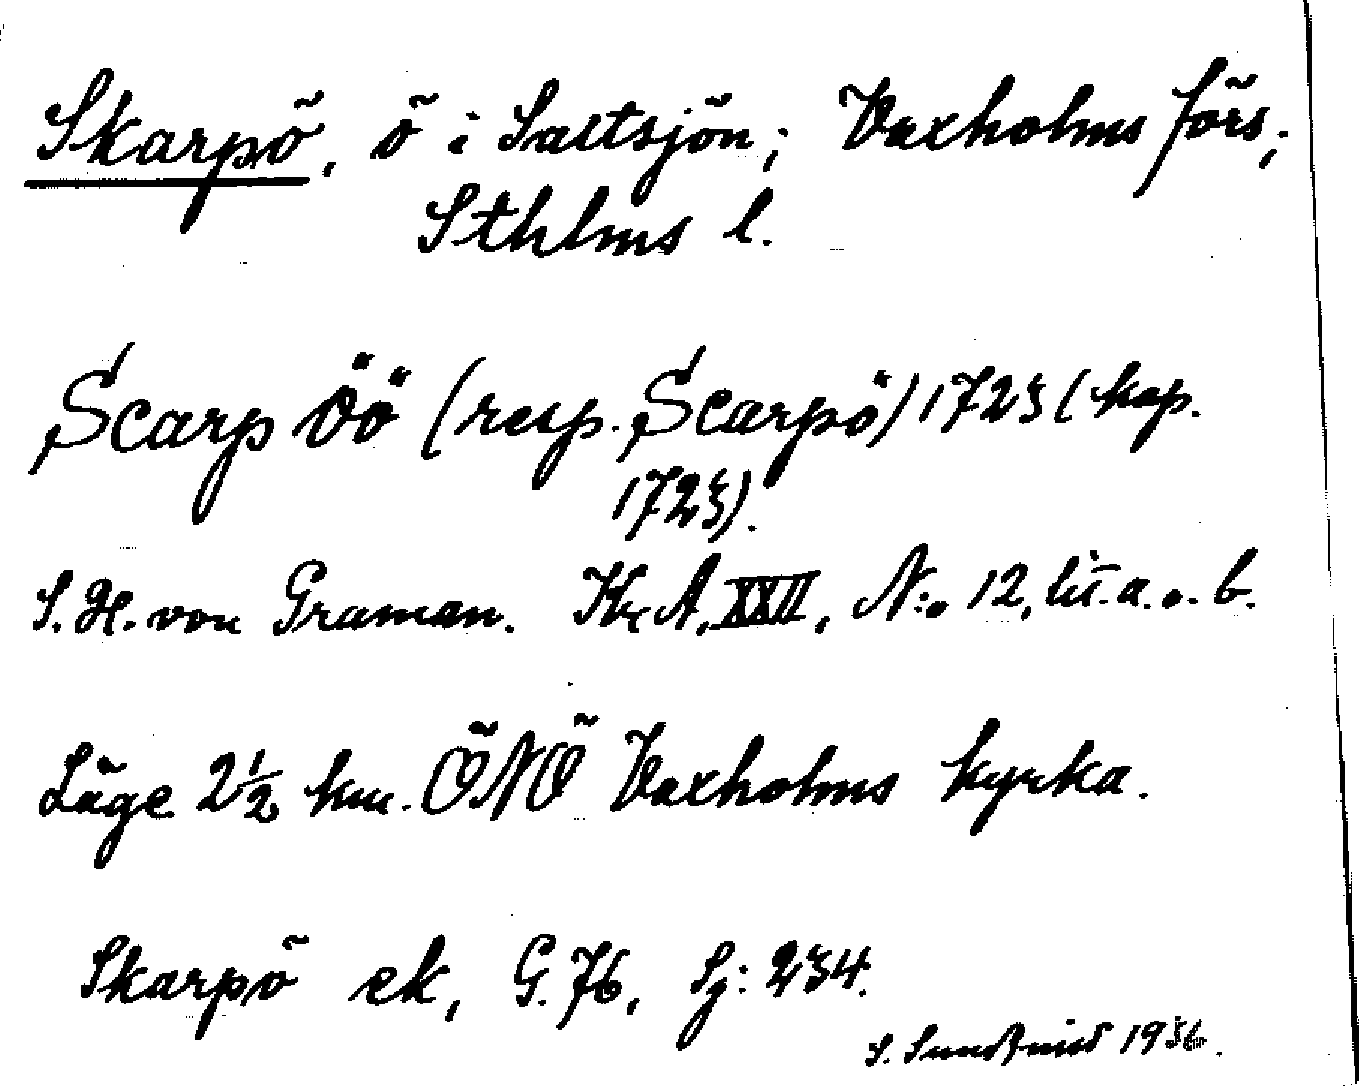 Skarpö, ö i Saltsjön; Vaxholms förs;
Sthlms l.
Scarp Öö (resp. Scarpö) 1723 (kop.
1723).
S. H. von Graman. KrA, XXII, N:o 12, lit. a. o. b.
Läge 2½ km. ÖNÖ Vaxholms kyrka.
Skarpö ek, G. 76, Sj: 234.
S. 1936.